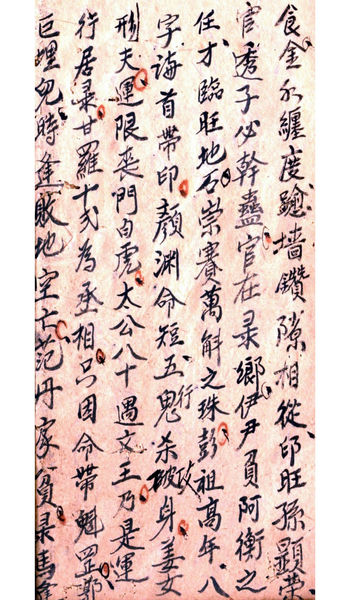 食金水纏度踰墙鑽隙相從印旺孫顯荣
官透子必幹蠱官在彔鄉伊尹負阿衡之
任才臨旺地石崇賽萬斛之珠彭祖高年八
字誨首帶印顏渊命短五鬼行杀破攻身姜女
刑夫運限喪門白虎太公八十遇文王乃是運
行居彔甘羅十弍為丞相只因命帶魁罡郭
巨埋兒時逢敗地空亡范丹家貧彔馬